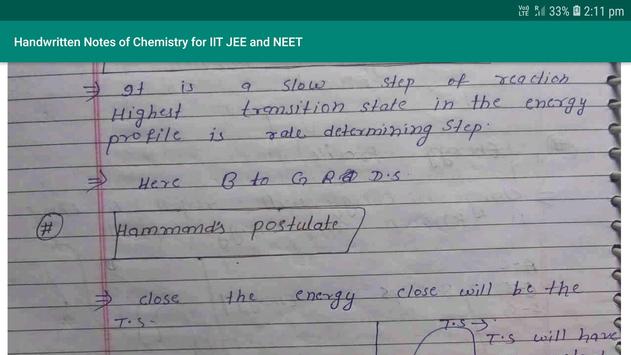 VoD LTE R 33% 2:11 pm
Handwritten Notes of Chemistry for IIT JEE and NEET
⇒ It is a slow step of reaction
Highest transition state in the energy
profile is rate determining step.
⇒ Here B to G R D.S.
# Hammond's postulate
⇒ close the energy close will be the
T.S-
T.S →
T.S will have